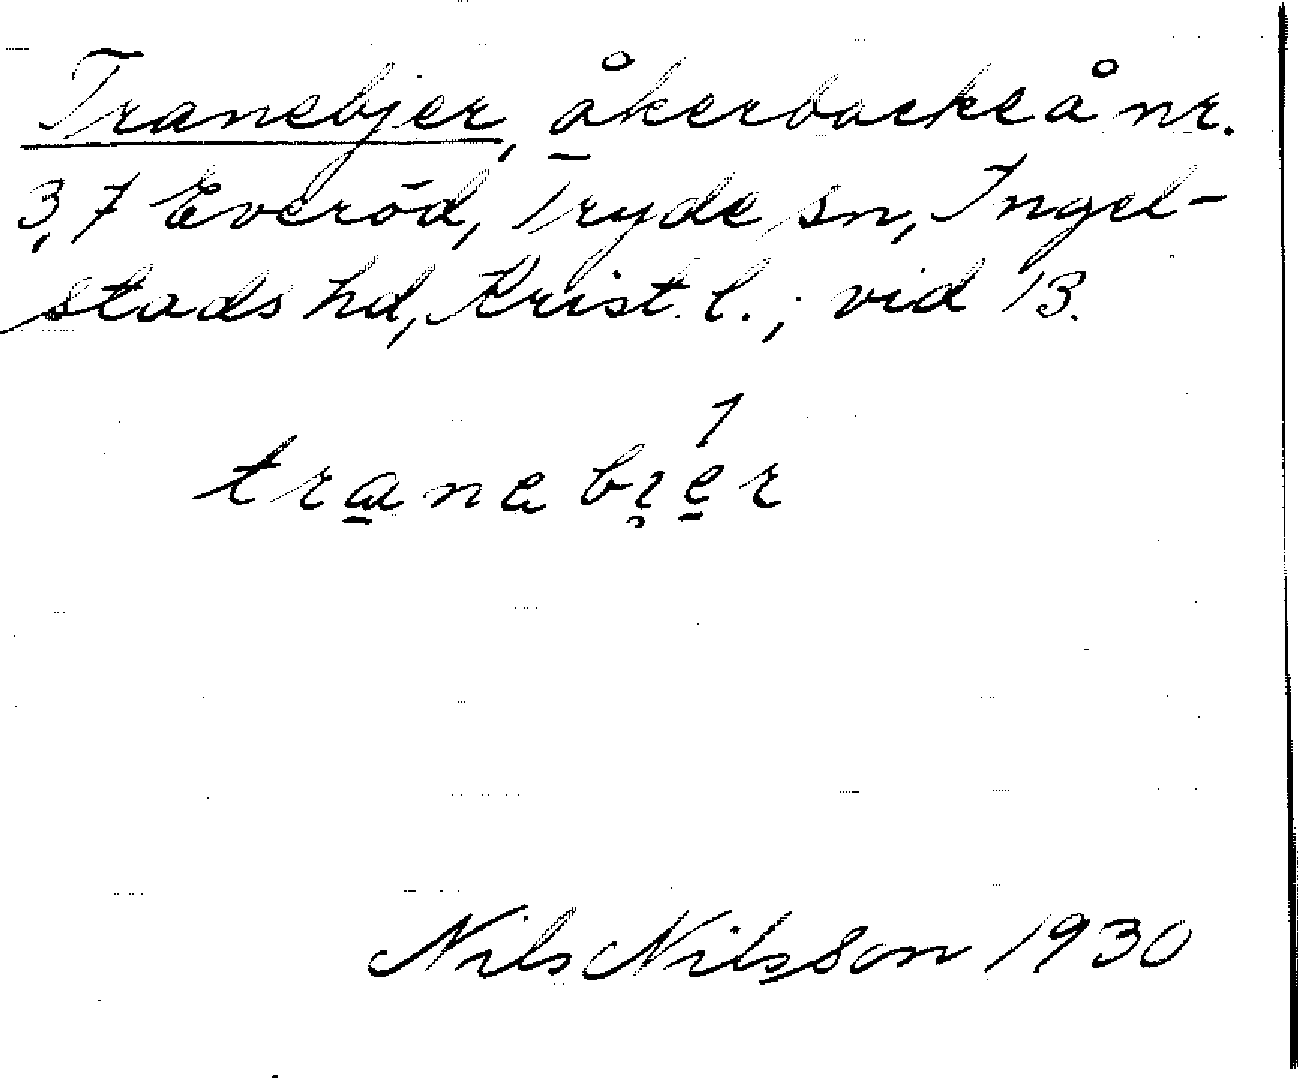 Tranebjer, åkerbacke å nr.
3, 7 Everöd, Tryde sn, Ingel-
stads hd, Krist. l.; vid 13.
1
tranebier
Nils Nilsson 1930